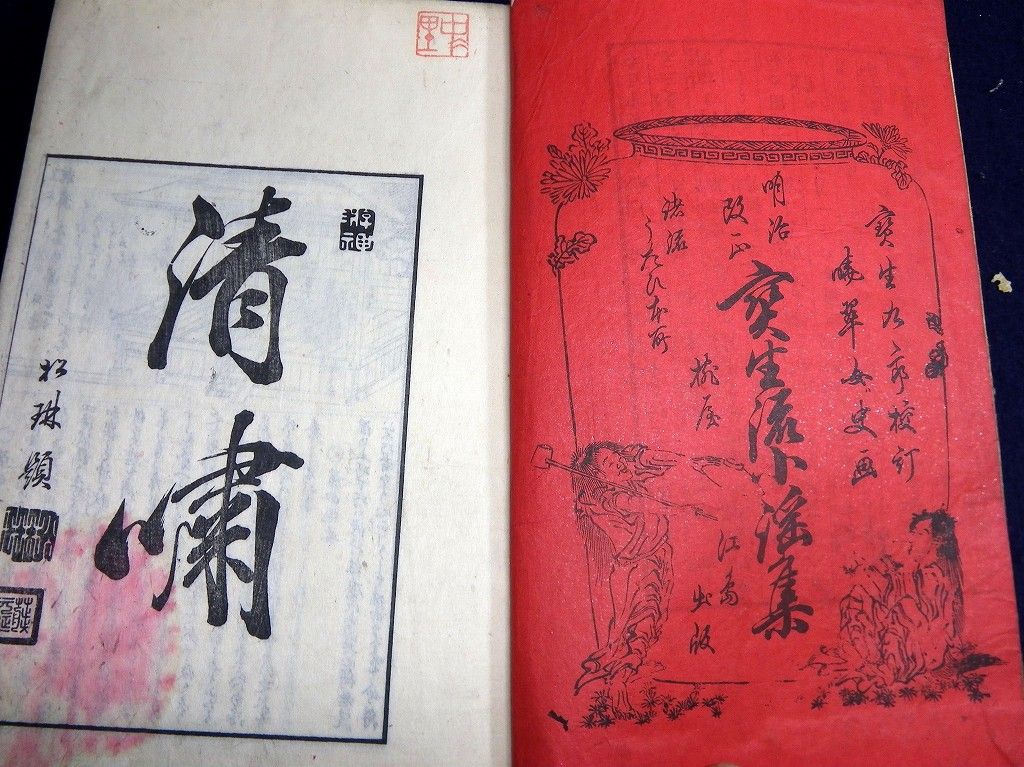 寶生九郎校訂
暁翠女史画
明治
改正
寶生流小謡集
諸流
うたひ本所
椀屋
江島
出版
清嘯
松琳題